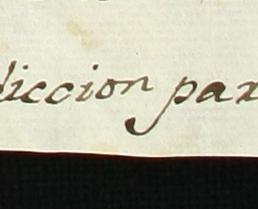 diccion par